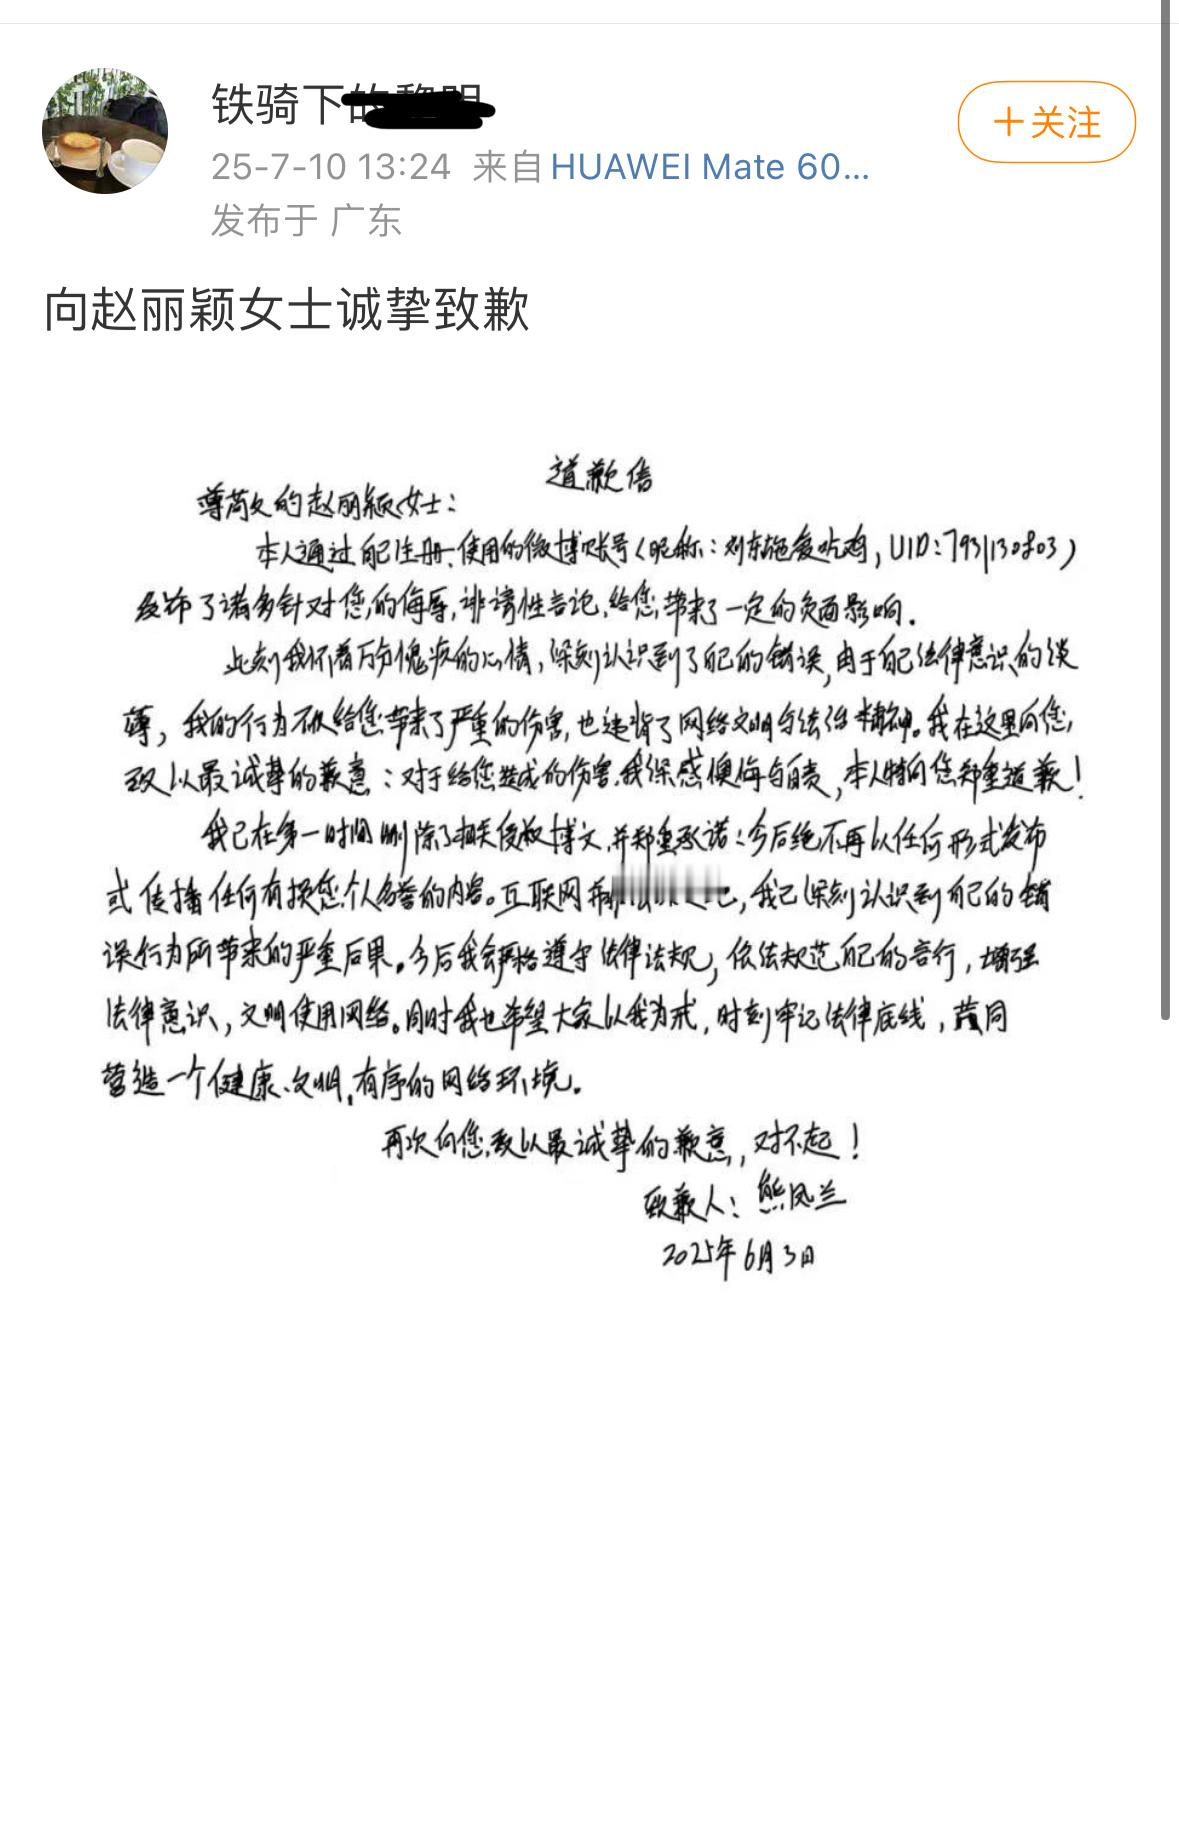 铁骑下
25-7-10 13:24 来自HUAWEI Mate 60...
发布于 广东
+关注
向赵丽颖女士诚挚致歉
道歉信
尊敬的赵丽颖女士：
本人通过自己注册、使用的微博账号（昵称：刘东施爱吃鸡，UID：7931130803）
发布了诸多针对您的侮辱，诽谤性言论，给您带来了一定的负面影响。
此刻我怀着万分愧疚的心情，深刻认识到了自己的错误，由于自己法律意识的淡
薄，我的行为不仅给您带来了严重的伤害，也违背了网络文明与法治精神。我在这里向您，
致以最诚挚的歉意：对于给您造成的伤害，我深感懊悔与自责，本人特向您郑重道歉！
我已在第一时间删除了相关侵权博文，并郑重承诺：今后绝不再以任何形式发布
或传播任何有损您个人名誉的内容。互联网并，我已深刻认识到自己的错
误行为所带来的严重后果。今后我会严格遵守法律法规，依法规范自己的言行，增强
法律意识，文明使用网络。同时我也希望大家以我为戒，时刻牢记法律底线，共同
营造一个健康、文明、有序的网络环境。
再次向您致以最诚挚的歉意，对不起！
致歉人：熊凤兰
2025年6月3日